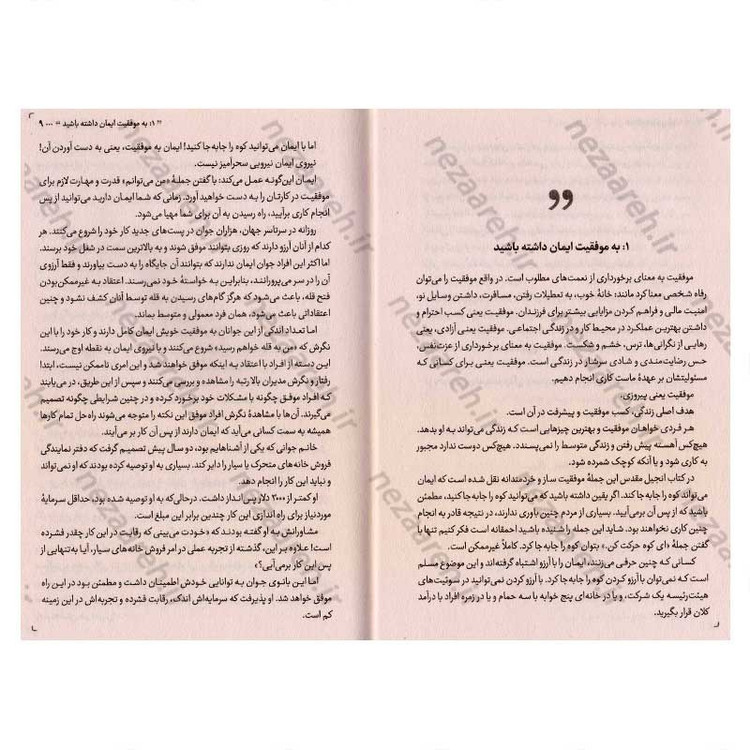 ”
۱: به موفقیت ایمان داشته باشید
موفقیت به معنای برخورداری از نعمت‌های مطلوب است. در واقع موفقیت را می‌توان
رفاه شخصی معنا کرد مانند؛ خانهٔ خوب، به تعطیلات رفتن، مسافرت، داشتن وسایل نو،
امنیت مالی و فراهم کردن مزایای بیشتر برای فرزندان. موفقیت یعنی کسب احترام و
داشتن بهترین عملکرد در محیط کار و در زندگی اجتماعی. موفقیت یعنی آزادی، یعنی
رهایی از نگرانی‌ها، ترس، خشم و شکست. موفقیت به معنای برخورداری از عزت‌نفس،
حس رضایت‌مندی و شادی سرشار در زندگی است. موفقیت یعنی برای کسانی که
مسئولیتشان بر عهدهٔ ماست کاری انجام دهیم.
موفقیت یعنی پیروزی.
هدف اصلی زندگی، کسب موفقیت و پیشرفت در آن است.
هر فردی خواهان موفقیت و بهترین چیزهایی است که زندگی می‌تواند به او بدهد.
هیچ‌کس آهسته پیش رفتن و زندگی متوسط را نمی‌پسندد. هیچ‌کس دوست ندارد مجبور
به کاری شود و یا آنکه کوچک شمرده شود.
در کتاب انجیل مقدس این جملهٔ موفقیت ساز و خردمندانه نقل شده است که ایمان
می‌تواند کوه را جابه جا کند. اگر یقین داشته باشید که می‌توانید کوه را جابه جا کنید، مطمئن
باشید که از پس آن برمی‌آیید. بسیاری از مردم چنین باوری ندارند، در نتیجه قادر به انجام
چنین کاری نخواهند بود. شاید این جمله را شنیده باشید احمقانه است فکر کنیم تنها با
گفتن جملهٔ «ای کوه حرکت کن.» بتوان کوه را جابه جا کرد. کاملاً غیرممکن است.
کسانی که چنین حرفی می‌زنند، ایمان را با آرزو اشتباه گرفته‌اند و این موضوع مسلم
است که نمی‌توان با آرزو کردن کوه را جابه جا کرد. با آرزو کردن نمی‌توانید در سوئیت‌های
هیئت‌رئیسه یک شرکت، و یا در خانه‌ای پنج خوابه با سه حمام و یا در زمره افراد با درآمد
کلان قرار بگیرید.
” ۱: به موفقیت ایمان داشته باشید “ ... ۹
اما با ایمان می‌توانید کوه را جابه جا کنید! ایمان به موفقیت، یعنی به دست آوردن آن!
نیروی ایمان نیرویی سحرآمیز نیست.
ایمان این‌گونه عمل می‌کند؛ با گفتن جملهٔ «من می‌توانم» قدرت و مهارت لازم برای
موفقیت در کارتان را به دست خواهید آورد. زمانی که شما ایمان دارید می‌توانید از پس
انجام کاری برآیید، راه رسیدن به آن برای شما مهیا می‌شود.
روزانه در سرتاسر جهان، هزاران جوان در پست‌های جدید کار خود را شروع می‌کنند. هر
کدام از آنان آرزو دارند که روزی بتوانند موفق شوند و به بالاترین سمت در شغل خود برسند.
اما اکثر این افراد جوان ایمان ندارند که بتوانند آن جایگاه را به دست بیاورند و فقط آرزوی
آن را در سر می‌پرورانند، بنابراین به خواستهٔ خود نمی‌رسند. اعتقاد به غیرممکن‌بودن
فتح قله، باعث می‌شود که هرگز گام‌های رسیدن به قله توسط آنان کشف نشود و چنین
اعتقاداتی باعث می‌شود، همان فرد معمولی و متوسط بماند.
اما تعداد اندکی از این جوانان به موفقیت خویش ایمان کامل دارند و کار خود را با این
نگرش که «من به قله خواهم رسید» شروع می‌کنند و با نیروی ایمان به نقطه اوج می‌رسند.
این دسته از افراد با اعتقاد به اینکه موفق خواهند شد و این امری ناممکن نیست، ابتدا
رفتار و نگرش مدیران بالا رتبه را مشاهده و بررسی می‌کنند و سپس از این طریق، در می‌یابند
که افراد موفق چگونه با مشکلات خود برخورد کرده و در چنین شرایطی چگونه تصمیم
می‌گیرند. آن‌ها با مشاهدهٔ نگرش افراد موفق این نکته را متوجه می‌شوند راه حل تمام کارها
همیشه به سمت کسانی می‌آید که ایمان دارند از پس آن کار بر می‌آیند.
خانم جوانی که یکی از آشناهایم بود، دو سال پیش تصمیم گرفت که دفتر نمایندگی
فروش خانه‌های متحرک یا سیار را دایر کند. بسیاری به او توصیه کرده بودند که او نمی‌تواند
و نباید این کار را انجام دهد.
او کمتر از ۳۰۰۰ دلار پس‌انداز داشت. درحالی‌که به او توصیه شده بود، حداقل سرمایهٔ
موردنیاز برای راه اندازی این کار چندین برابر این مبلغ است.
مشاورانش به او گفته بودند که «خودت می‌بینی که رقابت در این کار چقدر فشرده
است! علاوه بر این، گذشته از تجربه عملی در امر فروش خانه‌های سیار، آیا به‌تنهایی از
پس این کار برمی‌آیی؟»
اما این بانوی جوان به توانایی خودش اطمینان داشت و مطمئن بود در این راه
موفق خواهد شد. او پذیرفت که سرمایه‌اش اندک، رقابت فشرده و تجربه‌اش در این زمینه
کم است.
nezaareh.ir